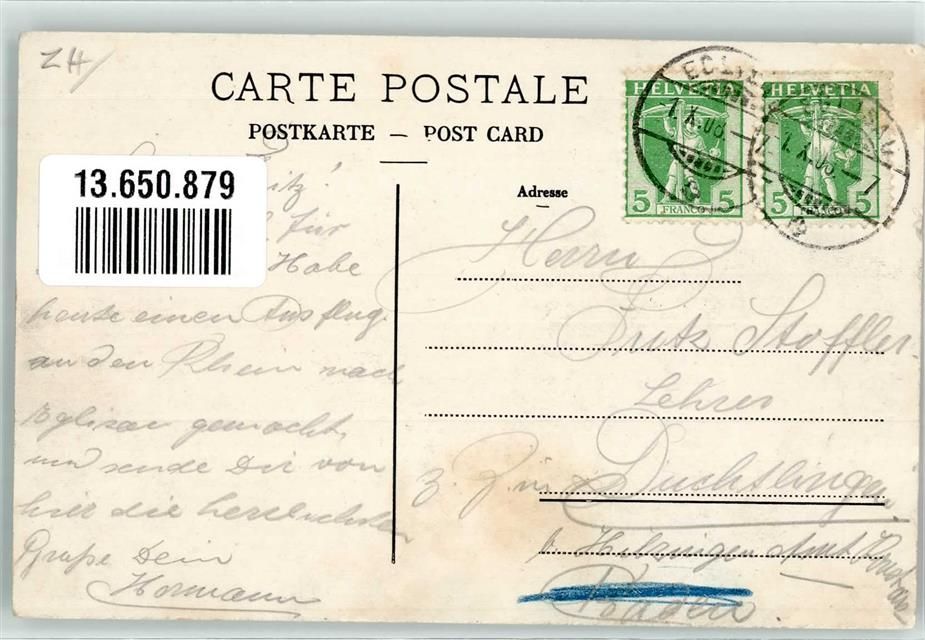 ZH
CARTE POSTALE
POSTKARTE — POST CARD
HELVETIA HELVETIA
5 FRANCO 5 5 FRANCO 5
13.650.879
Adresse
für
Habe
heute einen Ausflug
an den Rhein nach
Eglisau gemacht,
und sende Dir von
hier die herzlichsten
Grüße Dein
Hermann
Herrn
Fritz Stoffler
Lehrer
z. Z. in Duchtlingen
b. Hilzingen Amt
Baden